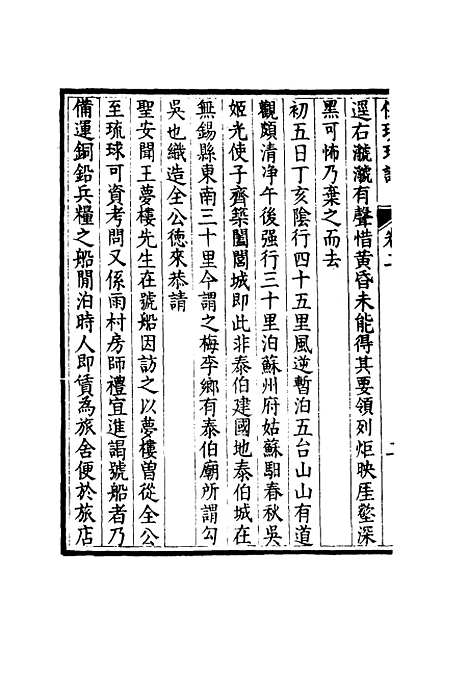 使琉球記 卷二
逕右漉漉有聲惜黄昏未能得其要領列炬映厓壑深
黑可怖乃棄之而去
初五日丁亥陰行四十五里風逆暫泊五台山山有道
觀頗清净午後强行三十里泊蘇州府姑蘇駅春秋吳
姬光使子齊築闔閭城即此非泰伯建國地泰伯城在
無錫縣東南三十里今謂之梅李鄉有泰伯廟所謂勾
吳也織造全公德來恭請
聖安聞王夢樓先生在號船因訪之以夢樓曽從全公
至琉球可資考問又係雨村房師禮宜進謁號船者乃
備運銅鉛兵糧之船閒泊時人即賃為旅舍便於旅店